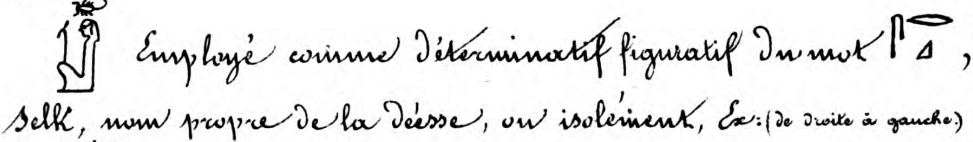 Employé comme déterminatif figuratif du mot 𓋴𓂋𓈎,
Selk, nom propre de la déesse, ou isolément, Ex: (de droite à gauche.)